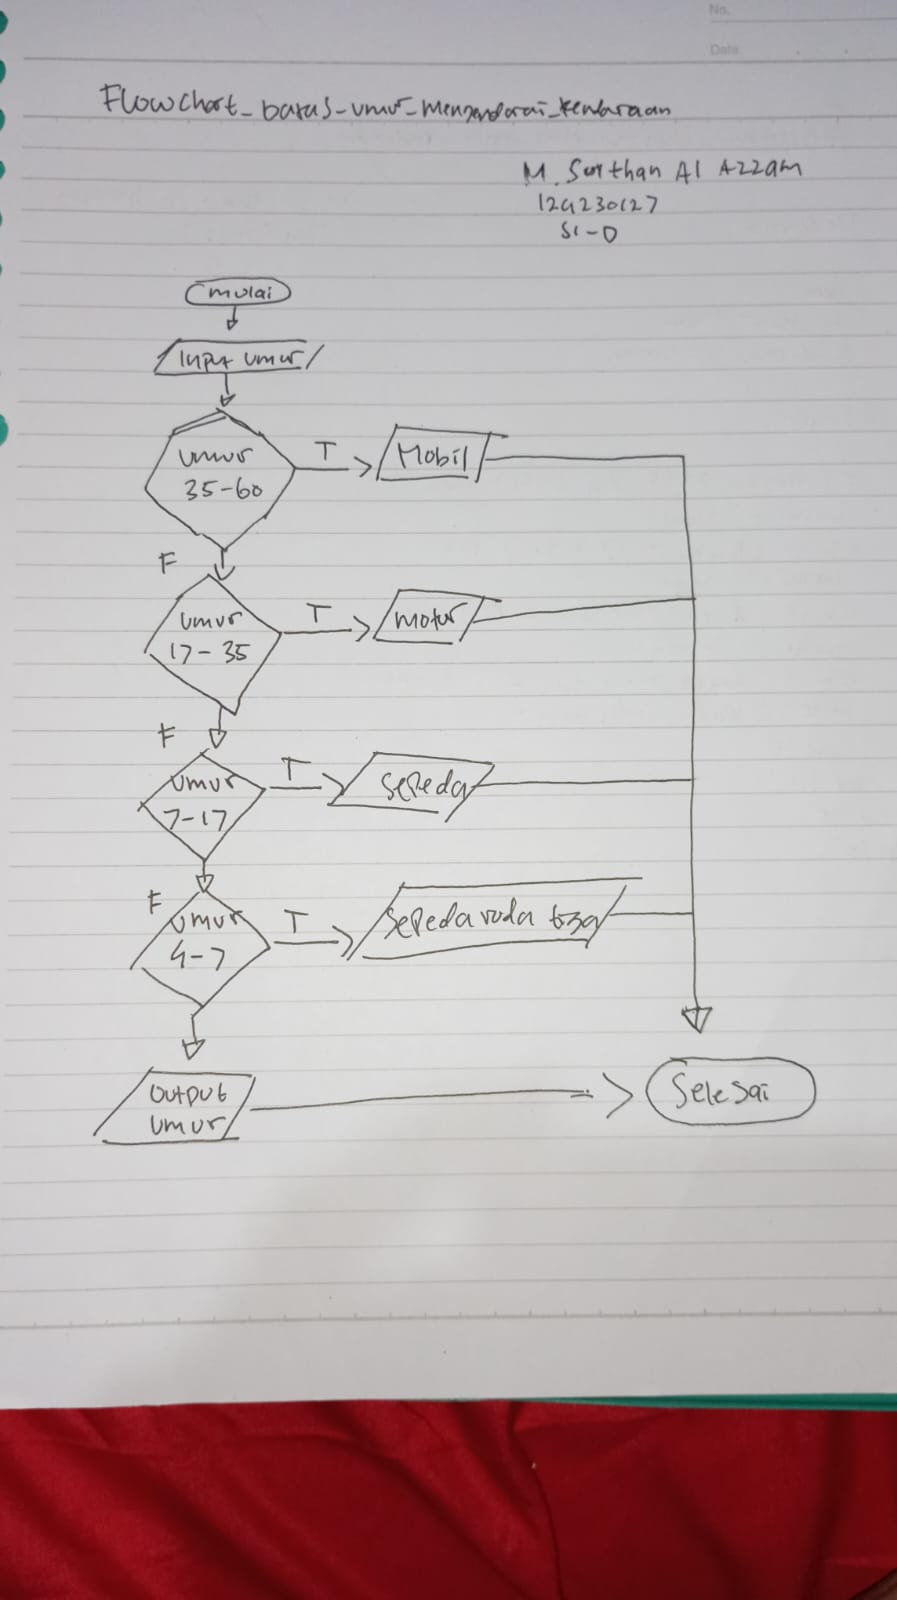 No.
Date
Flowchart_batas_umur_mengendarai_kendaraan
M. Surthan Al Azzam
SI-D
mulai
Input umur
umur
35-60
T
Mobil
F
umur
17-35
T
motor
F
umur
7-17
T
Sepeda
F
umur
4-7
T
Sepeda roda
output
umur
Selesai